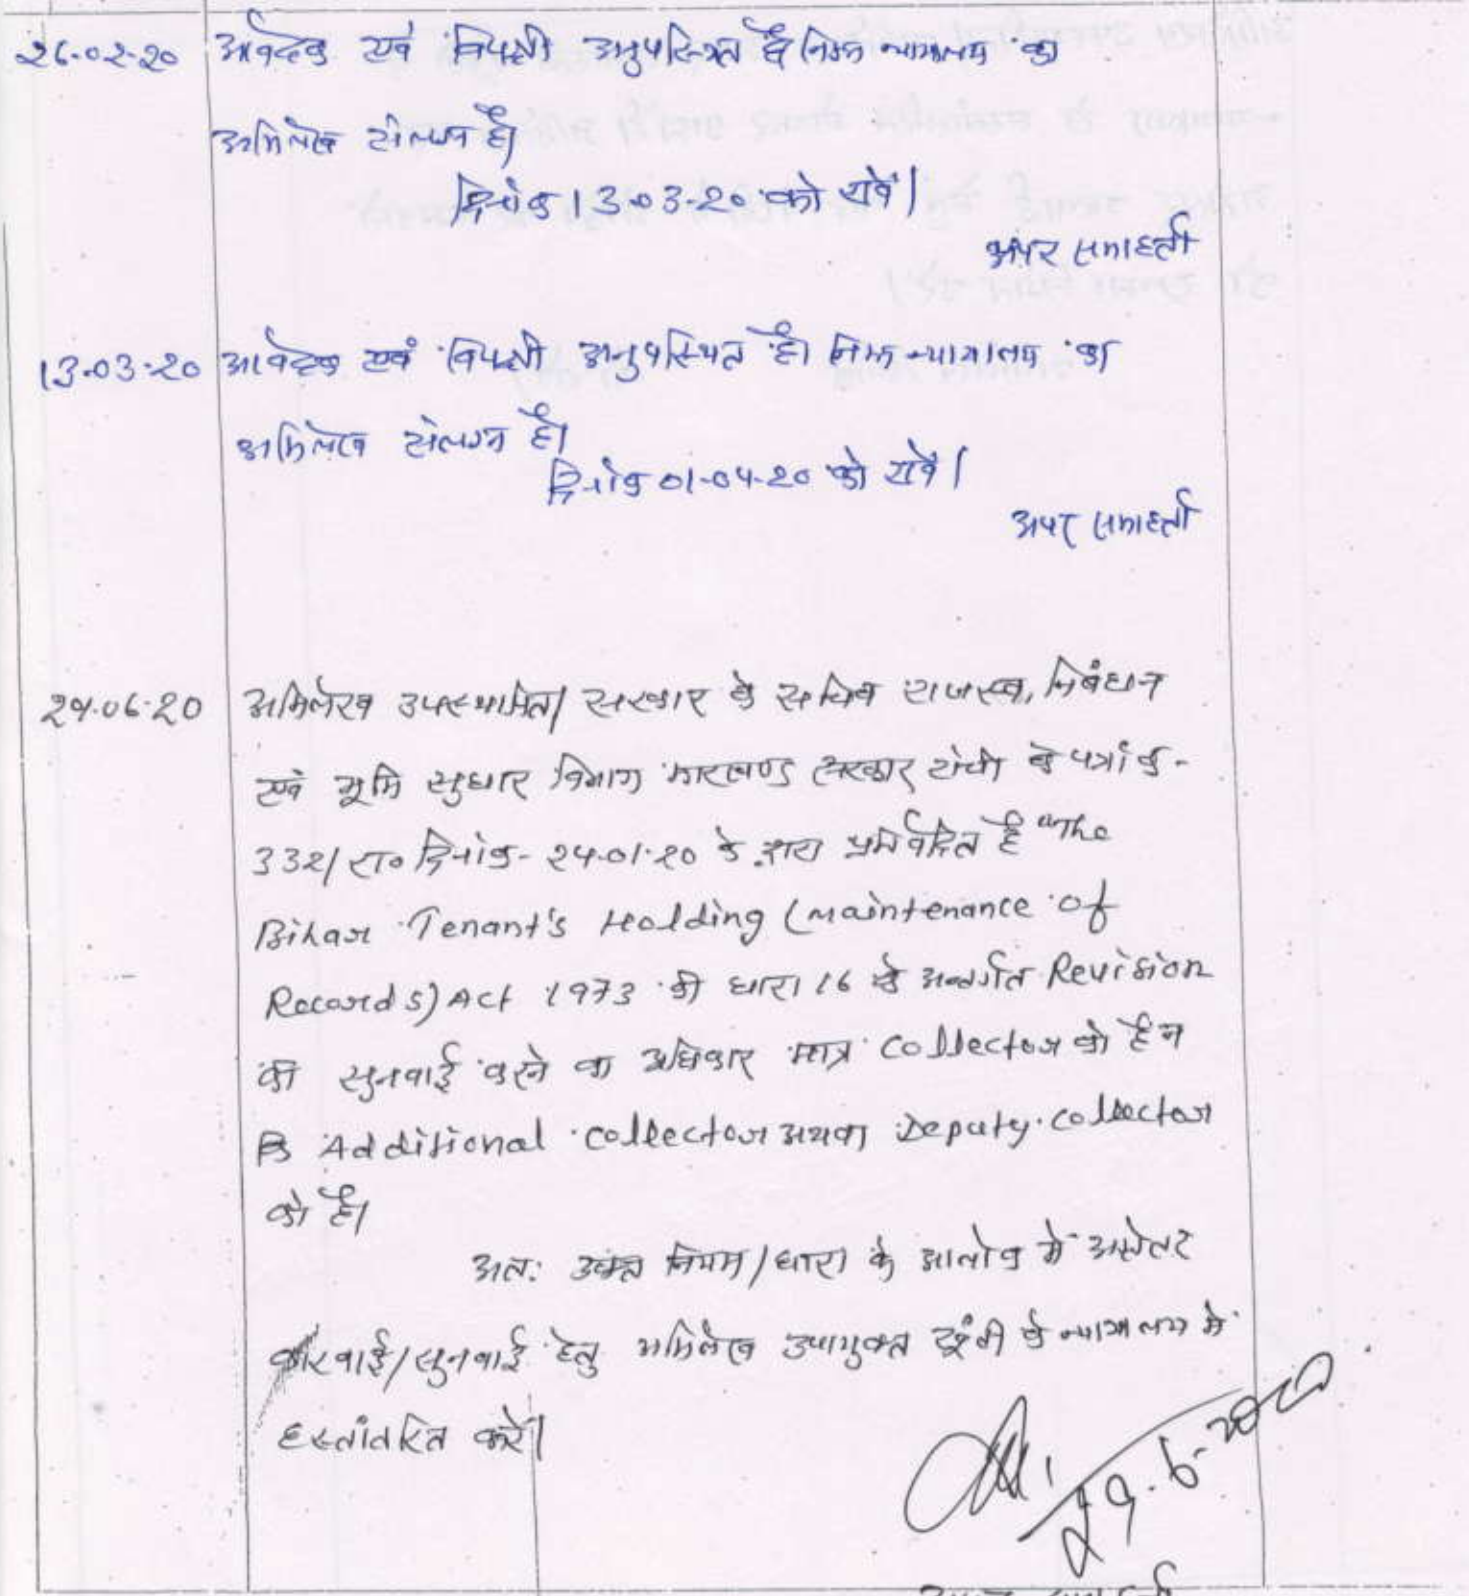 26-02-20 आवेदक एवं विपक्षी अनुपस्थित है निम्न न्यायालय का
अभिलेख संलग्न है।
दिनांक 13-03-20 को रखें।
अपर समाहर्ता
13-03-20 आवेदक एवं विपक्षी अनुपस्थित है। निम्न न्यायालय का
अभिलेख संलग्न है।
दिनांक 01-04-20 को रखें।
अपर समाहर्ता
29-06-20 अभिलेख उपस्थापित। सरकार के सचिव राजस्व, निबंधन
एवं भूमि सुधार विभाग झारखण्ड सरकार रांची के पत्रांक-
332/रा० दिनांक- 24-01-20 के द्वारा प्रतिवेदित है "The
Bihar Tenant's Holding (Maintenance of
Records) Act 1973 की धारा 16 के अन्तर्गत Revision
की सुनवाई करने का अधिकार मात्र Collector को है न
कि Additional Collector अथवा Deputy Collector
को है।
अत: उक्त नियम/धारा के आलोक में अग्रेतर
कारवाई/सुनवाई हेतु अभिलेख उपायुक्त खूँटी के न्यायालय में
हस्तांतरित करें।
29.6.2020